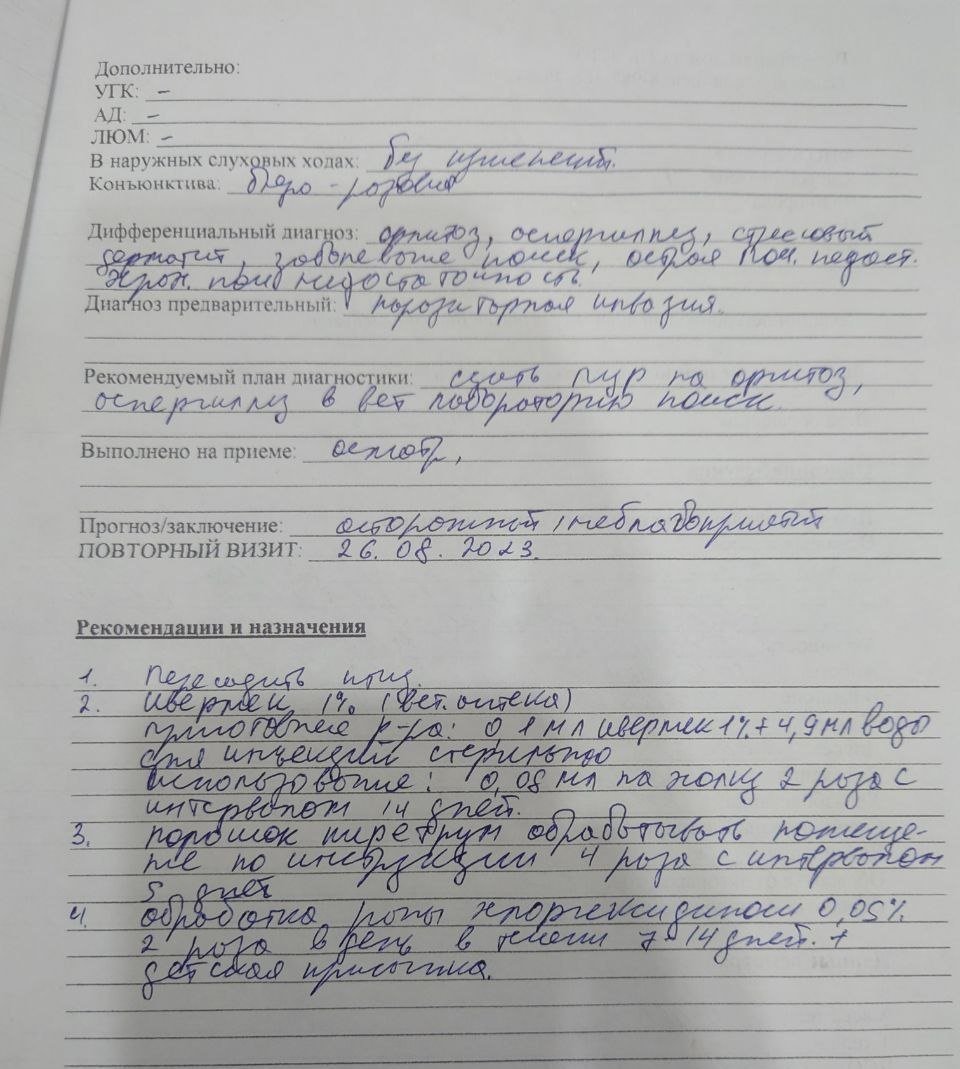 Дополнительно:
УГК: –
АД: –
ЛЮМ: –
В наружных слуховых ходах: без изменений.
Конъюнктива: бледно-розовая
Дифференциальный диагноз: орнитоз, аспергиллез, стрессовый
дерматит, заболевание почек, острая поч. недост.
хрон. поч недостаточность.
Диагноз предварительный: паразитарная инвазия.
Рекомендуемый план диагностики: сдать ПЦР на орнитоз,
аспергиллез в вет лабораторию поиск.
Выполнено на приеме: осмотр,
Прогноз/заключение: осторожный, неблагоприятный
ПОВТОРНЫЙ ВИЗИТ: 26.08.2023.
Рекомендации и назначения
1. Пересадить птиц.
2. Ивермек 1% (вет. аптека)
приготовление р-ра: 0,1 мл ивермек 1% + 4,9 мл воды
для инъекций стерильно
использование: 0,08 мл на холку 2 раза с
интервалом 14 дней.
3. порошок пиретрум обрабатывать помеще-
ние по инструкции 4 раза с интервалом
5 дней
4. обработка раны хлоргексидином 0,05%
2 раза в день в течении 7-14 дней. +
детская присыпка.